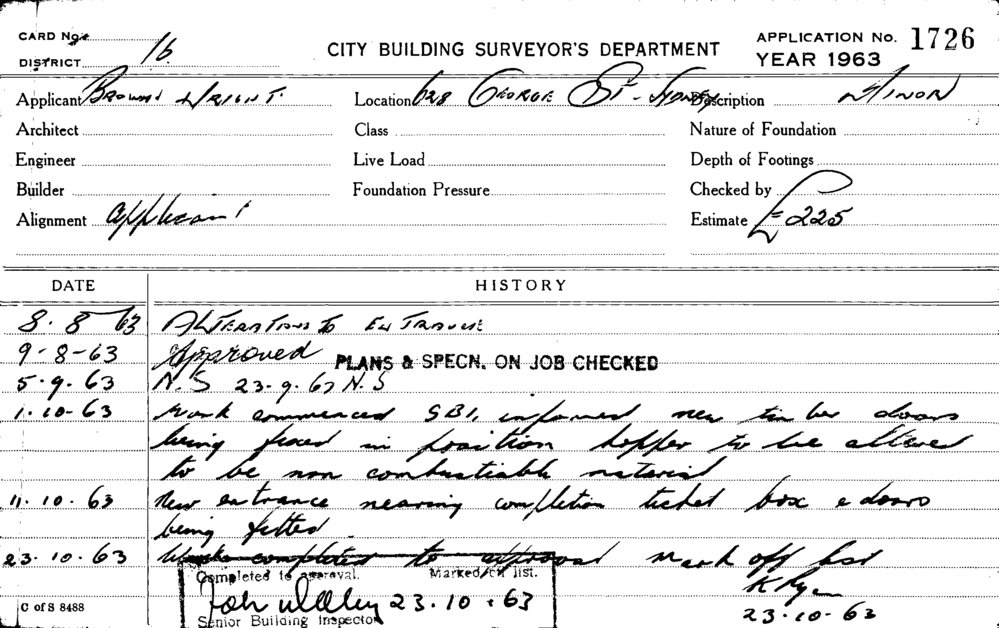 CARD No.
DISTRICT 16
CITY BUILDING SURVEYOR'S DEPARTMENT
APPLICATION No. 1726
YEAR 1963
Applicant Brown & Wright.
Location 628 George St. Sydney
Description Minor
Architect
Class
Nature of Foundation
Engineer
Live Load
Depth of Footings
Builder
Foundation Pressure
Checked by
Alignment Applicant
Estimate £225
DATE
HISTORY
8.8.63 Alterations to Entrance
9-8-63 Approved PLANS & SPECN. ON JOB CHECKED
5.9.63 N.S 23-9.63 N.S
1.10-63 Work commenced SBI, informed new timber doors
being fixed in position hopper to be altered
to be non combustiable material
11.10.63 New entrance nearing completion ticket box & doors
being fitted
23.10.63 Work completed to approval Mark off list
Completed to approval. Marked off list.
K Ryan
23.10.63
23-10-63
Senior Building Inspector
C of S 8488